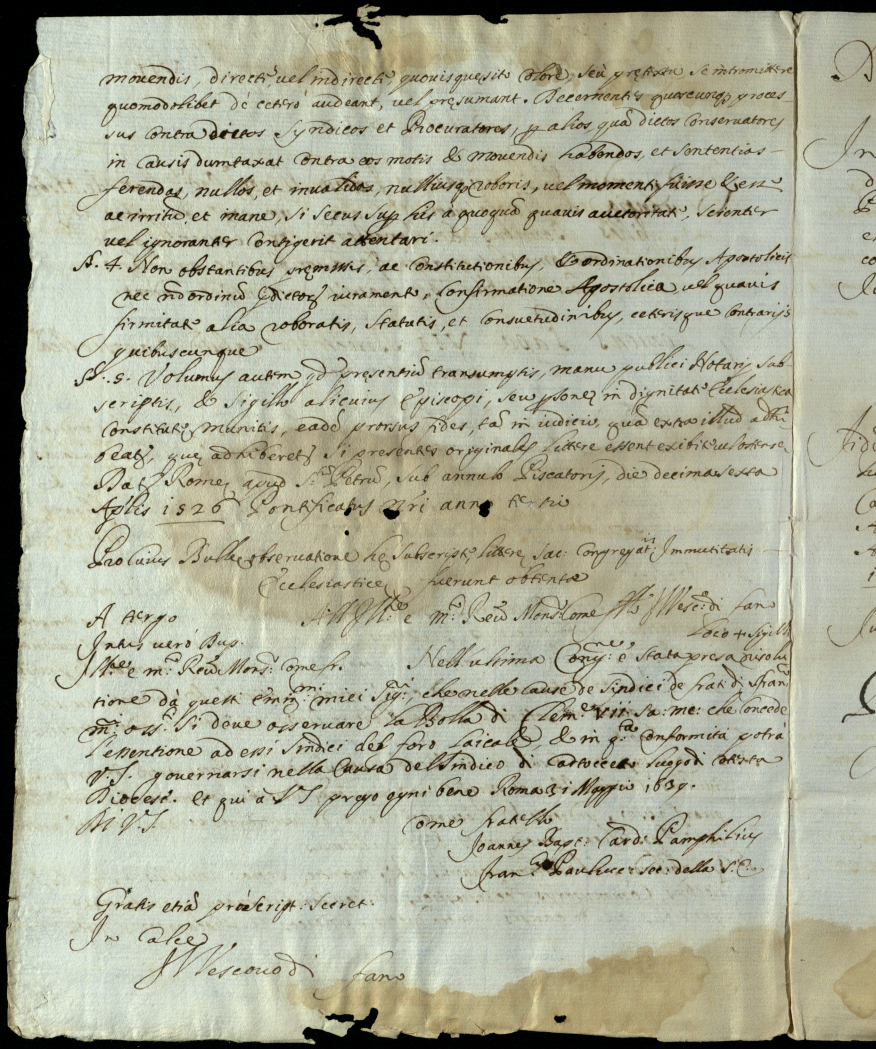 movendis, directe, vel indirecte, quovis quesito colore, seu pretextu se intromittere
quomodolibet de cetero audeant, vel presumant. Decernentes quoscunq; proces-
sus contra dictos Syndicos et Procuratores, p alios qua dictos Conservatores
in causis dumtaxat contra eos motis & movendis habendos, et sententias
ferendas, nullos, et invalidos, nulliusq; roboris, vel momenti fuisse & esse
ac irritu, et inane, si secus sup his a quoquo quavis auctoritate, scienter
vel ignoranter contigerit attentari.
§. 4. Non obstantibus premissis, ac Constitutionibus, & ordinationibus Apostolicis
nec non ordinu pdictor iuramento, Confirmatione Apostolica vel quavis
firmitate alia roboratis, statutis, et consuetudinibus, ceterisque contrarijs
quibuscunque
§. 5. Volumus autem qd presentiu transumptis, manu publici Notarij sub-
scriptis, & sigillo alicuius Episcopi, seu psone in dignitate Ecclesiastica
constitute munitis, eade prorsus fides, ta in iudicio, qua extra illud adhi-
beat, que adhiberet si presentes originales littere essent exhibite vel ostense
Dat Rome apud S. Petru, sub annulo Piscatoris, die decimasexta
Aplis 1526 Pontificatus Nri anno tertio
Pro cuius Bulle observatione he subscripte littere, Sac: Congregatnis Immunitatis
Ecclesiastice fuerunt obtente
A tergo All Ill.re e m.to Reu Mons: Come fr̃llo Il Vesc:o di Fano
Loco + Sigilli
Intus vero Dup.
Ill.re e m.to Reu Mons: come fr. Nell'ultima Cong.ne è stata presa risolu
tione da questi Emin.mi miei Sig.ri, che nelle cause de sindici de frati di s fran
m: oss: si deve osservare la Bolla di Clem.e VII: sa: me: che concede
l'essentione ad essi sindici del foro laicale, & in q.ta conformità potrà
V.S. governarsi nella causa del sindico di luogo di cotesta
Diocese. Et qui à V S prego ogni bene Roma 3i Maggio 1639.
Di V.S. come fratello
Joannes Bapt: Card: Pamphilius
Fran.co Paulucci sec: della S.C.
Gratis etia pro script: secret:
In calce
Il Vescovo di Fano